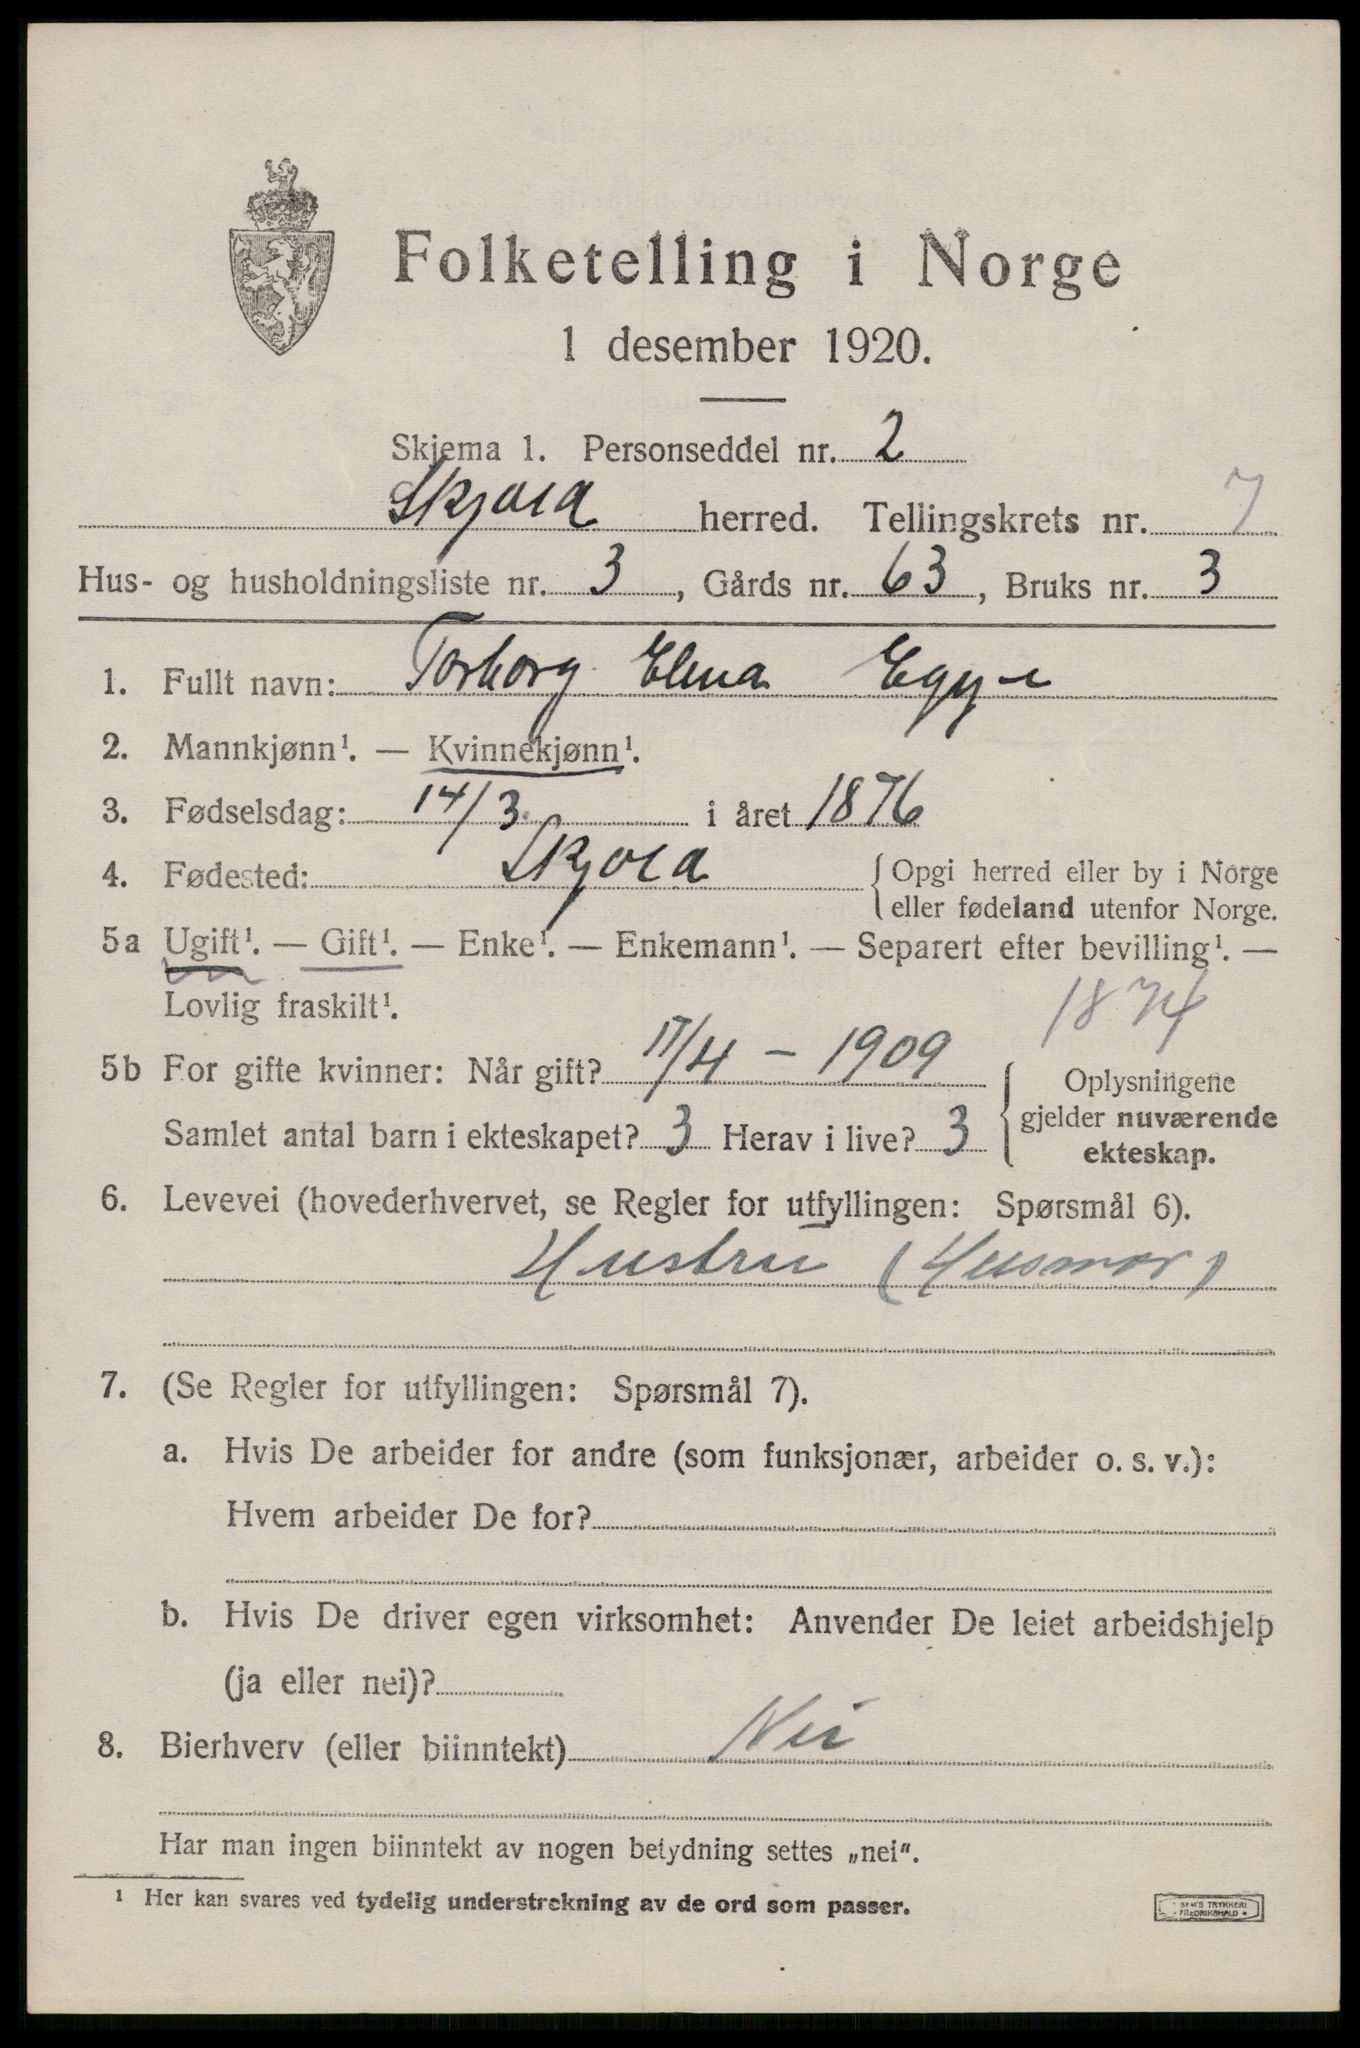 Folketelling i Norge
1 desember 1920.
Skjema 1. Personseddel nr. 2
Skjold herred. Tellingskrets nr. 7
Hus- og husholdningsliste nr. 3, Gårds nr. 63, Bruks nr. 3
1. Fullt navn: Torborg Elina Egge
2. Mannkjønn¹. — Kvinnekjønn¹.
3. Fødselsdag: 14/3 i året 1876
4. Fødested: Skjold { Opgi herred eller by i Norge
eller fødeland utenfor Norge.
5a Ugift¹. — Gift¹. — Enke¹. — Enkemann¹. — Separert efter bevilling¹. —
Lovlig fraskilt¹. 1874
5b For gifte kvinner: Når gift? 17/4 - 1909
Samlet antal barn i ekteskapet? 3 Herav i live? 3
Oplysningene
gjelder nuværende
ekteskap.
6. Levevei (hovederhvervet, se Regler for utfyllingen: Spørsmål 6).
Hustru (Husmor)
7. (Se Regler for utfyllingen: Spørsmål 7).
a. Hvis De arbeider for andre (som funksjonær, arbeider o. s. v.):
Hvem arbeider De for?
b. Hvis De driver egen virksomhet: Anvender De leiet arbeidshjelp
(ja eller nei)?
8. Bierhverv (eller biinntekt) Nei
Har man ingen biinntekt av nogen betydning settes „nei".
¹ Her kan svares ved tydelig understrekning av de ord som passer.
SEM'S TRYKKERI
FREDRIKSHALD